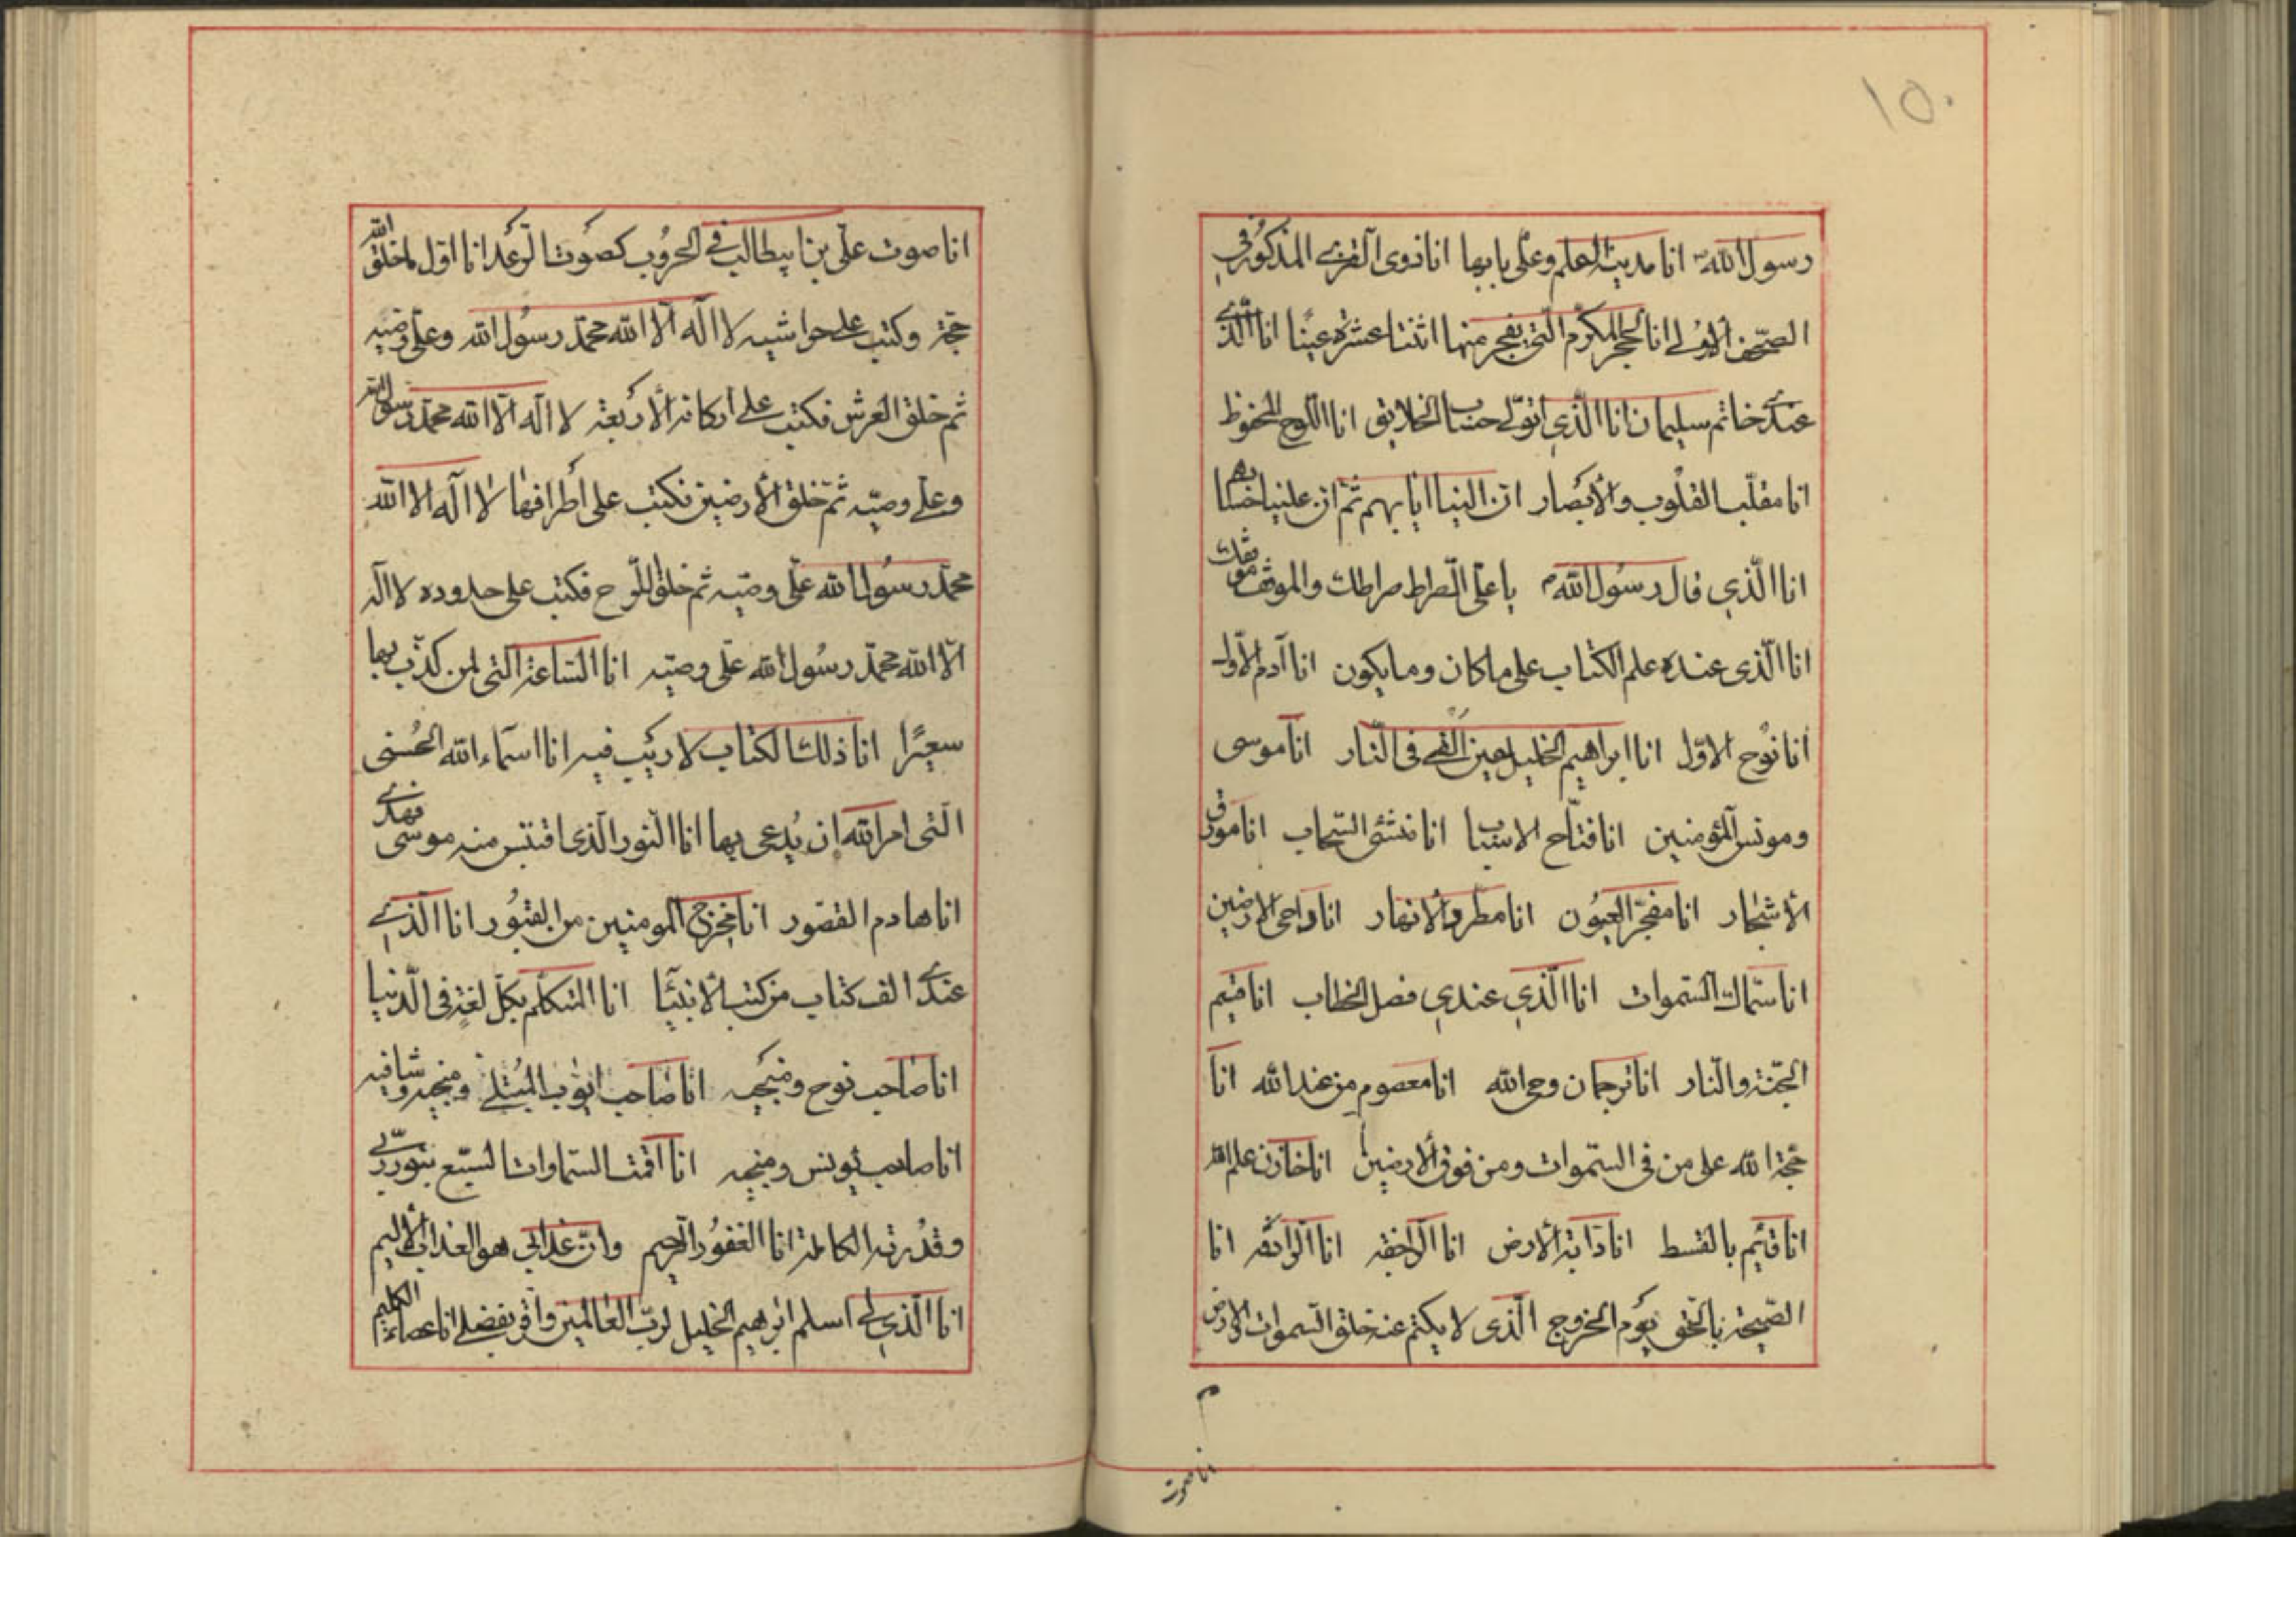 ١٥٠
رسول الله انا مدينة العلم وعلى بابها انا ذوى القربى المذكور فى
الصحف الاولى انا الحجر المكرم التى يفجر منها اثنتا عشرة عينا انا الذى
عندى خاتم سليمان انا الذى اتولى حساب الخلايق انا اللوح المحفوظ
انا مقلب القلوب والأبصار ان الينا ايابهم ثم ان علينا حسابهم
انا الذي قال رسول الله يا على الصراط صراطك والموقف موقفك
انا الذى عنده علم الكتاب على ماكان ومايكون انا آدم الأول
انا نوح الاول انا ابراهيم الخليل حين القى فى النار انا موسى
ومونس المؤمنين انا فتاح الاسباب انا منشئ السحاب انا مورق
الأشجار انا مفجر العيون انا مطرد الأنهار انا داحى الارضين
انا سماك السموات انا الذي عندي فصل الخطاب انا قيم
الجنة والنار انا ترجمان وحى الله انا معصوم من عند الله انا
حجة الله على من فى السموات ومن فوق الأرضين انا خازن علم الله
انا قائم بالقسط انا دابة الأرض انا الراجفه انا الرادفه انا
الصيحة بالحق يوم الخروج الذى لا يكتم عنه خلق السموات والارض
انا صوت
انا صوت على بن ابيطالب فى الحروب كصوت الرعد انا اول ماخلق الله
حجة وكتب على حواشيه لا اله الا الله محمد رسول الله وعلى وصيه
ثم خلق العرش فكتب على اركانه الأربعة لا اله الا الله محمد رسول الله
وعلى وصيه ثم خلق الأرضين فكتب على أطرافها لا اله الا الله
محمد رسول الله على وصيه ثم خلق اللوح فكتب على حدوده لا اله
الا الله محمد رسول الله على وصيه انا الساعة التى لمن كذب بها
سعيرا انا ذلك الكتاب لا ريب فيه انا اسماء الله الحسنى
التى امر الله ان يدعى بها انا النور الذى اقتبس منه موسى فهدى
انا هادم القصور انا مخرج المومنين من القبور انا الذى
عندى الف كتاب من كتب الأنبيا انا المتكلم بكل لغة فى الدنيا
انا صاحب نوح ومنجيه انا صاحب ايوب المبتلى ومنجيه وشافيه
انا صاحب يونس ومنجيه انا اقمت السماوات السبع بنور ربى
وقدرته الكاملة انا الغفور الرحيم وان عذابى هو العذاب الأليم
انا الذي لى اسلم ابرهيم الخليل لرب العالمين واقر بفضلى انا عصاء الكليم